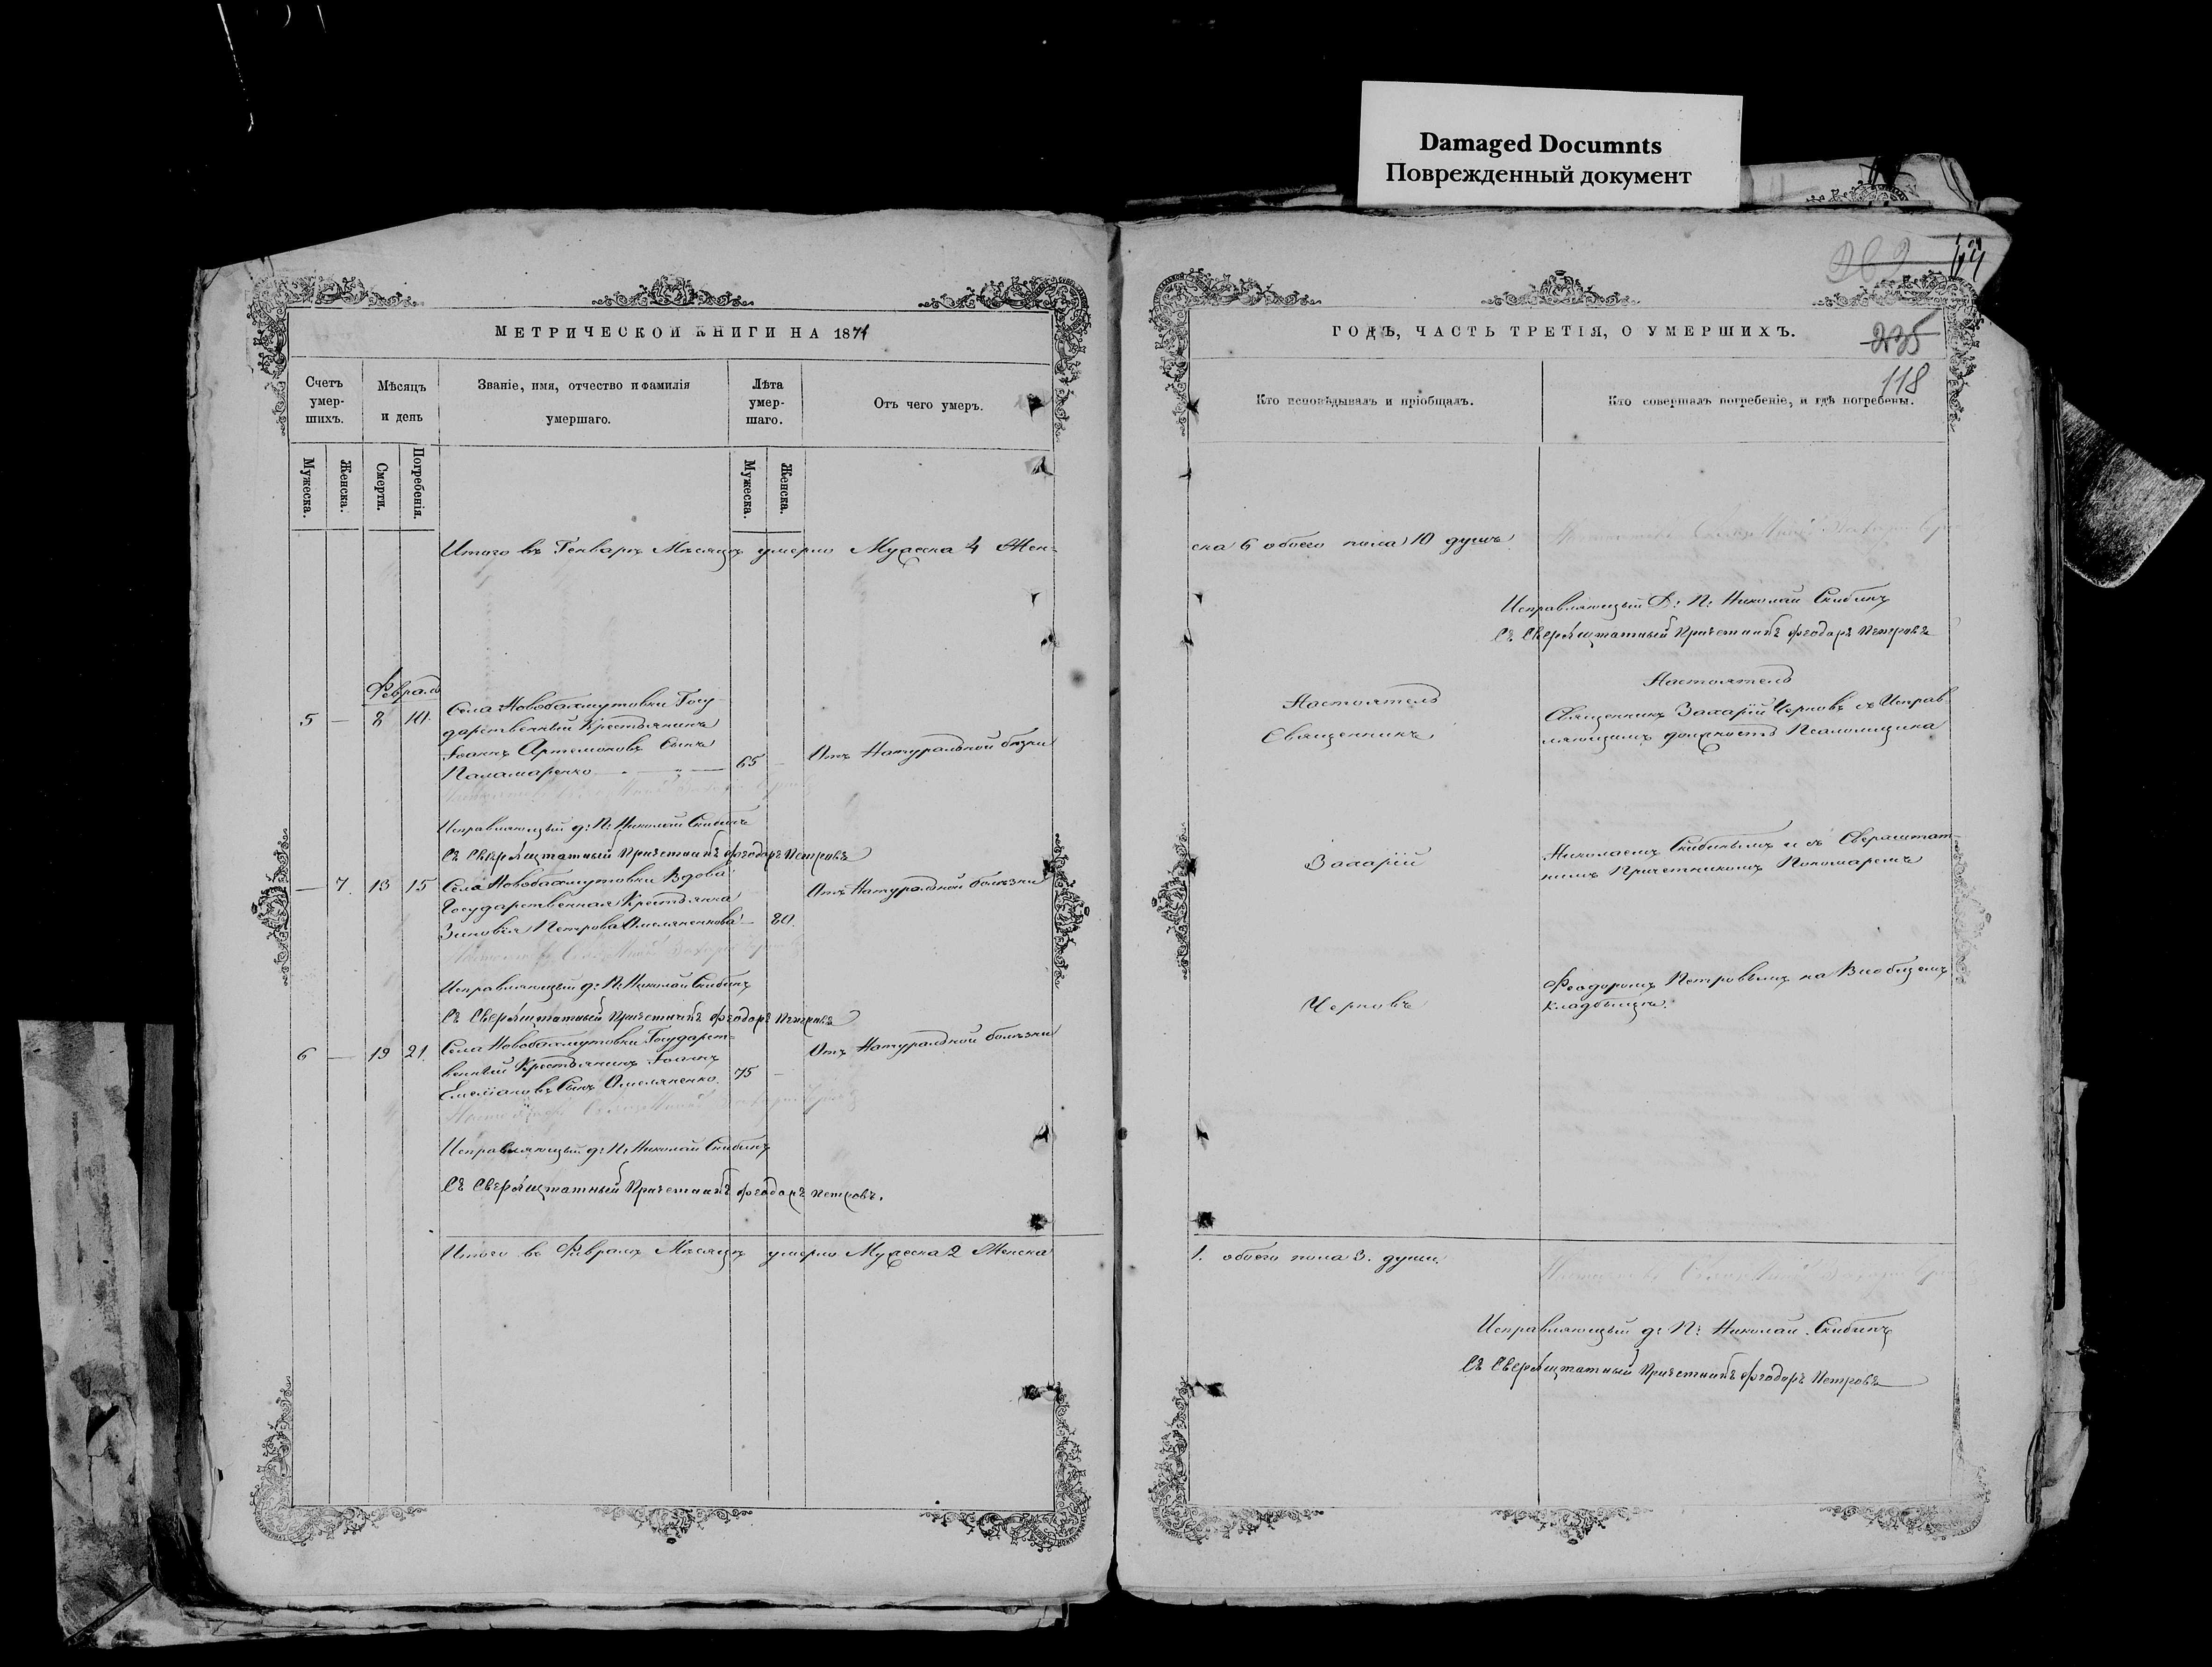 Damaged Documnts
Поврежденный документ
МЕТРИЧЕСКОЙ КНИГИ НА 1871
Счетъ умер-шихъ.
Мѣсяцъ и день
Званіе, имя, отчество и фамилія умершаго.
Лѣта умер-шаго.
Отъ чего умеръ.
Мужеска.
Женска.
Смерти.
Погребенія.
Мужеска.
Женска.
Итого въ Генварѣ Мѣсяцѣ умерло Мужеска 4 Жен-
Февраль
5 — 8 10. Села Новобахмутовки Госу-
дарственный Крестьянинъ
Іоаннъ Артемоновъ Сынъ
Паламаренко 65 — Отъ Натуральной
Исправляющій д: П: Николай Скибинъ
Съ Сверхштатный Причетникъ Феодоръ Петровъ
— 7. 13 15 Села Новобахмутовки Вдова Отъ Натуральной болѣзни
Государственная Крестьянка
Зиновія Петрова Омеляненкова — 80.
Исправляющій д: П: Николай Скибинъ
Съ Сверхштатный Причетникъ Феодоръ Петровъ
6 — 19 21. Села Новобахмутовки Государст- Отъ Натуральной болѣзни
венный Крестьянинъ Іоаннъ
Емеліановъ Сынъ Омеляненко. 75 —
Исправляющій д: П: Николай Скибинъ
Съ Сверхштатный Причетникъ Феодоръ Петровъ.
Итого въ Февралѣ Мѣсяцѣ умерло Мужеска 2 Женска
235
118
ГОДЪ, ЧАСТЬ ТРЕТІЯ, О УМЕРШИХЪ.
Кто исповѣдывалъ и пріобщалъ.
Кто совершалъ погребеніе, и гдѣ погребены.
ска 6 обоего пола 10 душъ
Исправляющій Д: П: Николай Скибинъ
Съ Сверхштатный Причетникъ Феодоръ Петровъ
Настоятель
Священникъ
Захарій
Черновъ
Настоятель
Священникъ Захарій Черновъ съ Исправ-
ляющимъ должность Псаломщика
Николаемъ Скибинымъ и съ Сверхштат-
нымъ Причетникомъ Пономаремъ
Феодоромъ Петровымъ на
кладбищѣ.
1. обоего пола 3. души.
Исправляющій д: П: Николай Скибинъ
Съ Сверхштатный Причетникъ Феодоръ Петровъ